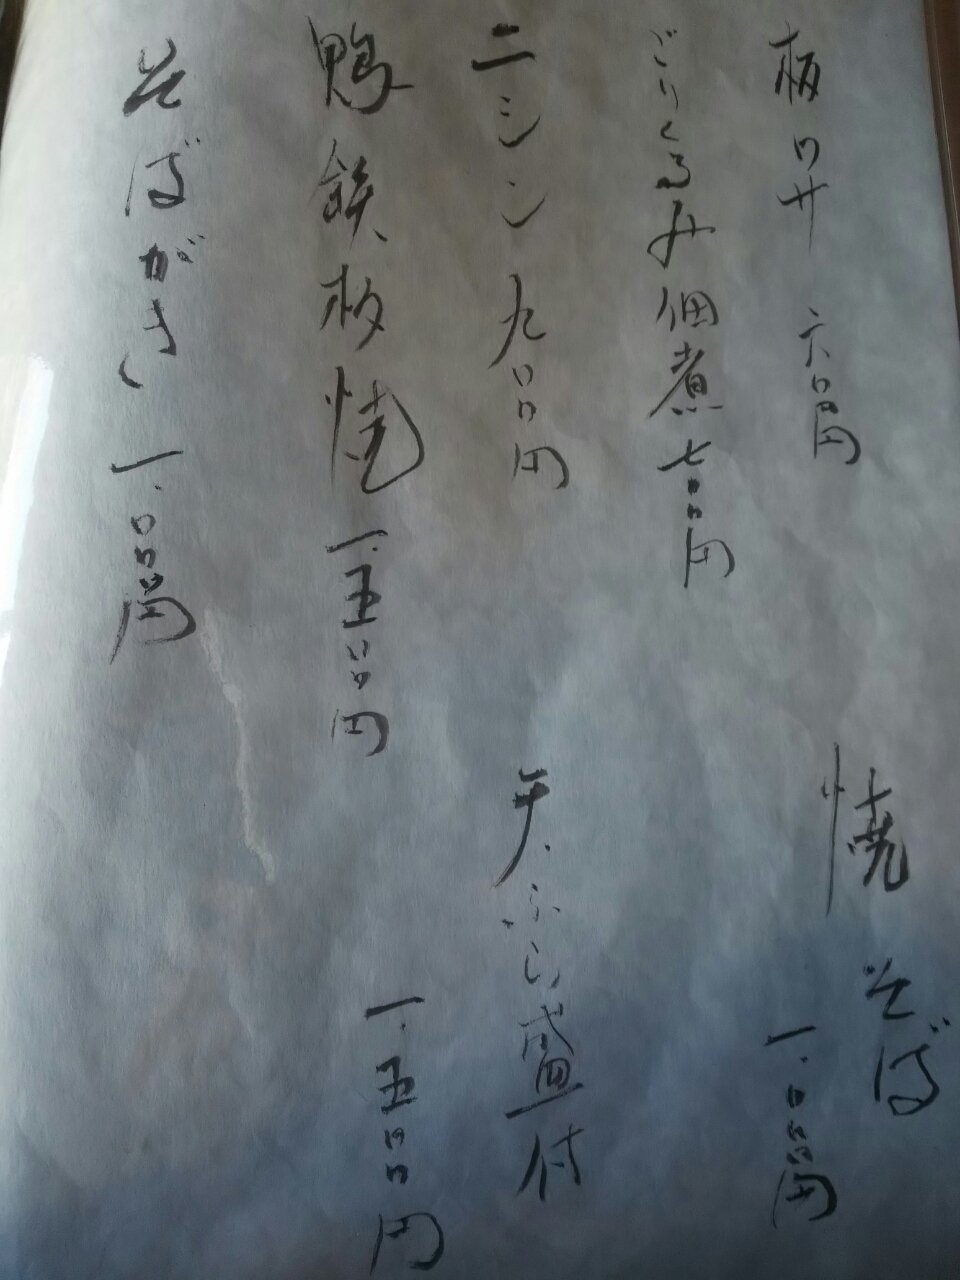 板ワサ 六〇〇円
ごりくるみ佃煮 七〇〇円
ニシン 九〇〇円
鴨鉄板焼 一.五〇〇円
そばがき 一.〇〇〇円
焼そば
一.〇〇〇円
天ぷら盛付
一.五〇〇円